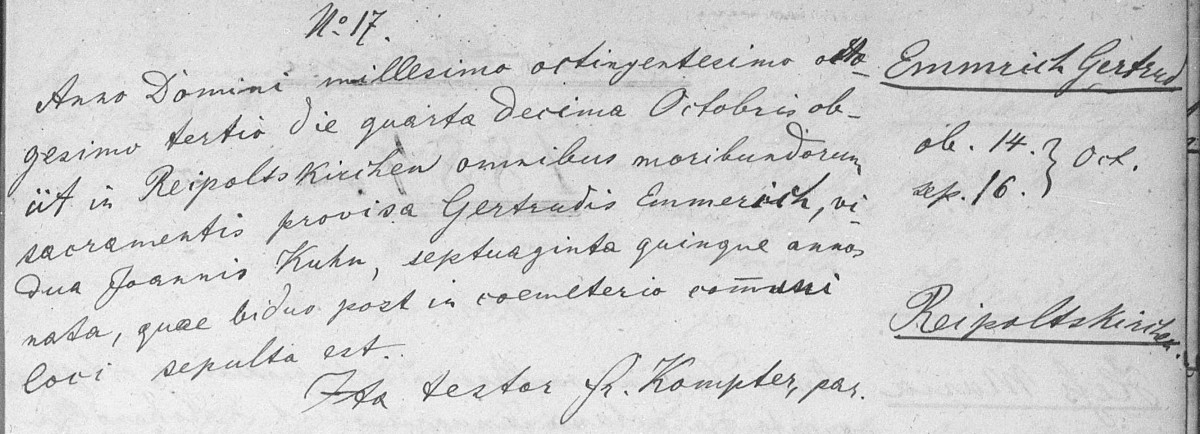 No 17.
Anno Domini millesimo octingentesimo octo-
gesimo tertio die quarta decima Octobris ob-
iit in Reipoltskirchen omnibus moribundorum
sacramentis provisa Gertrudis Emmerich, vi-
dua Joannis Kuhn, septuaginta quinque annos
nata, quae biduo post in coemeterio com̅uni
loci sepulta est.
Ita testor Kompter, par.
Emmrich Gertrud
ob. 14. } Oct.
sep. 16.
Reipoltskirchen.